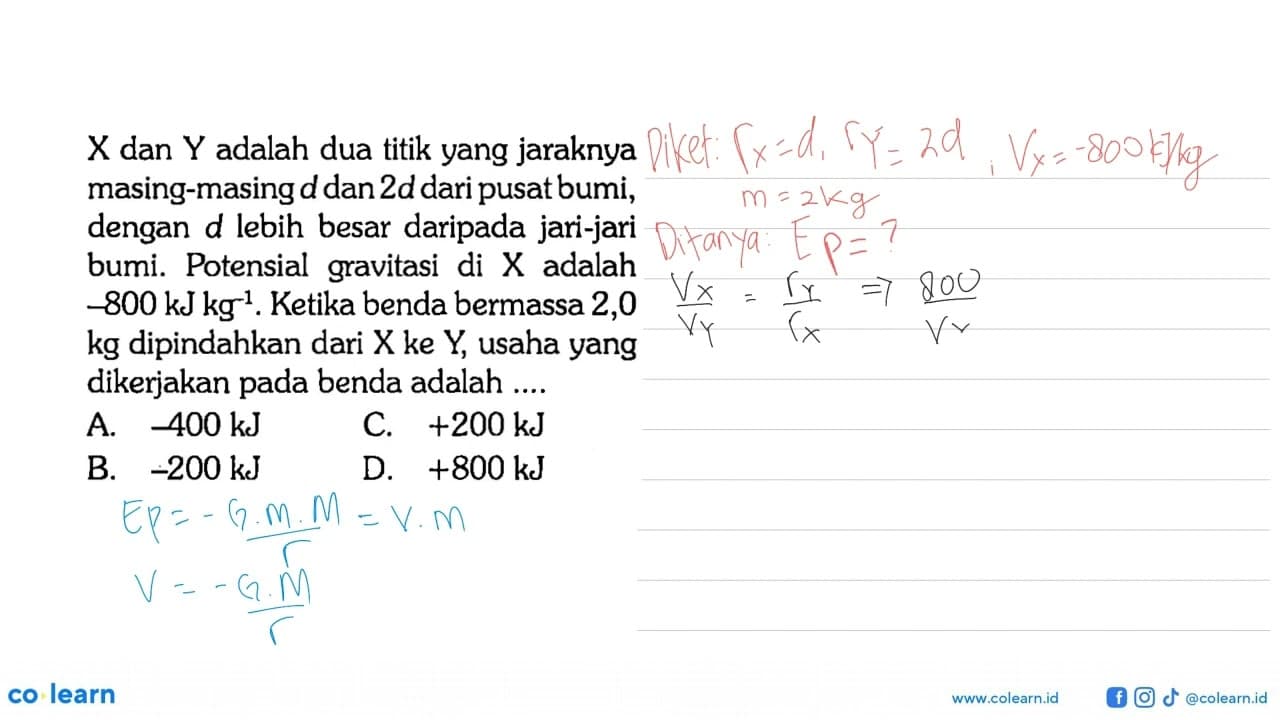 X dan Y adalah dua titik yang jaraknya
masing-masing d dan 2d dari pusat bumi,
dengan d lebih besar daripada jari-jari
bumi. Potensial gravitasi di X adalah
–800 kJ kg⁻¹. Ketika benda bermassa 2,0
kg dipindahkan dari X ke Y, usaha yang
dikerjakan pada benda adalah ....
A. –400 kJ C. +200 kJ
B. –200 kJ D. +800 kJ
Ep = - G.m.M / r = V.m
V = - G.M / r
Diket: rx = d, ry = 2d, Vx = -800 kJ/kg
m = 2kg
Ditanya: Ep = ?
Vx / Vy = ry / rx => 800 / Vy
co learn
www.colearn.id @colearn.id